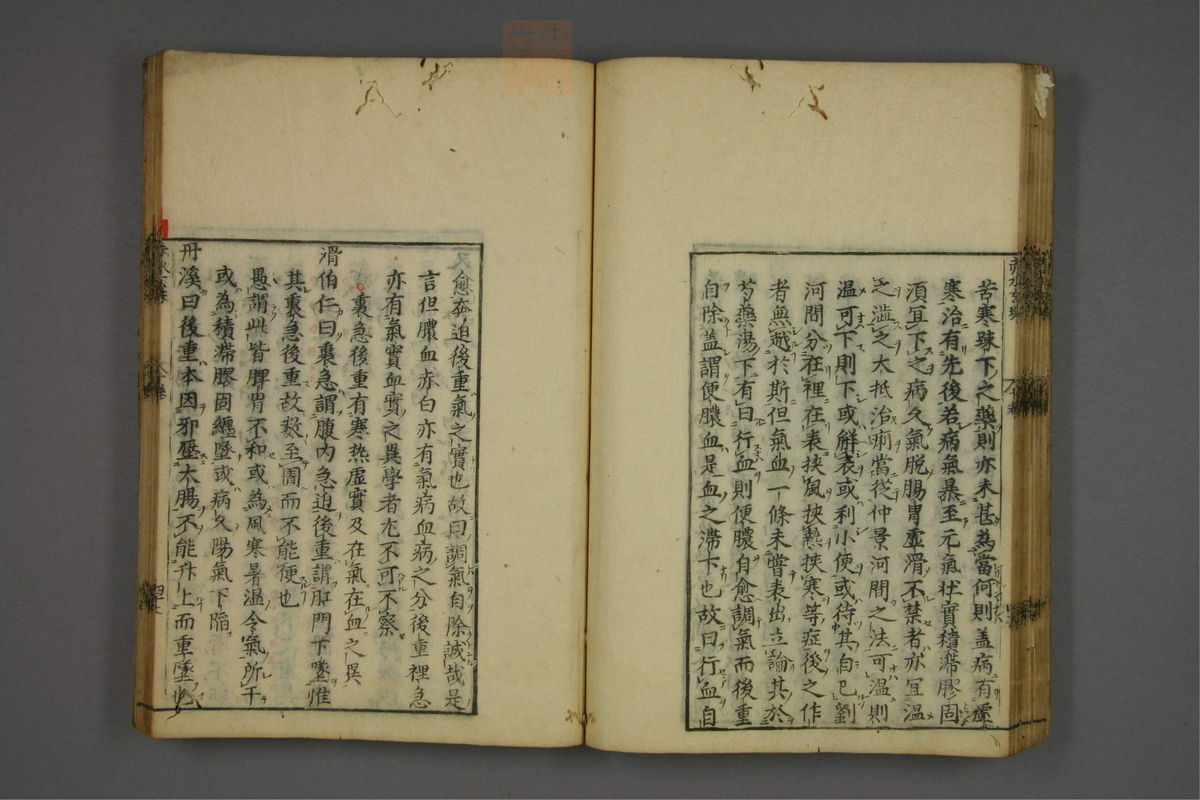 苦寒踈下之藥則亦未甚為當何則盖病有虛
寒治有先後若病氣暴至元氣壮實積滯膠固
須宜下之病久氣脫腸胃虛滑不禁者亦宜温
之澁之大抵治痢當從仲景河間之法可温則
温可下則下或解表或利小便或待其自已劉
河間分在裡在表挟風挟熱挟寒等症後之作
者無越於斯但氣血一條未嘗表出立論其於
芍藥湯下有曰行血則便膿自愈調氣而後重
自除盖謂便膿血是血之滯下也故曰行血自
愈奔迫後重氣之實也故曰調氣自除誠哉是
言但膿血赤白亦有氣病血病之分後重裡急
亦有氣實血實之異學者尤不可不察
裏急後重有寒热虛實及在氣在血之異
滑伯仁曰裏急謂腹内急迫後重謂肛門下墜惟
其裏急後重故数至圊而不能便也
愚謂此皆脾胃不和或為風寒暑温令氣所干
或為積滯膠固纏墜或病久陽氣下䧟
丹溪曰後重本因邪壓大腸不能升上而重墜也